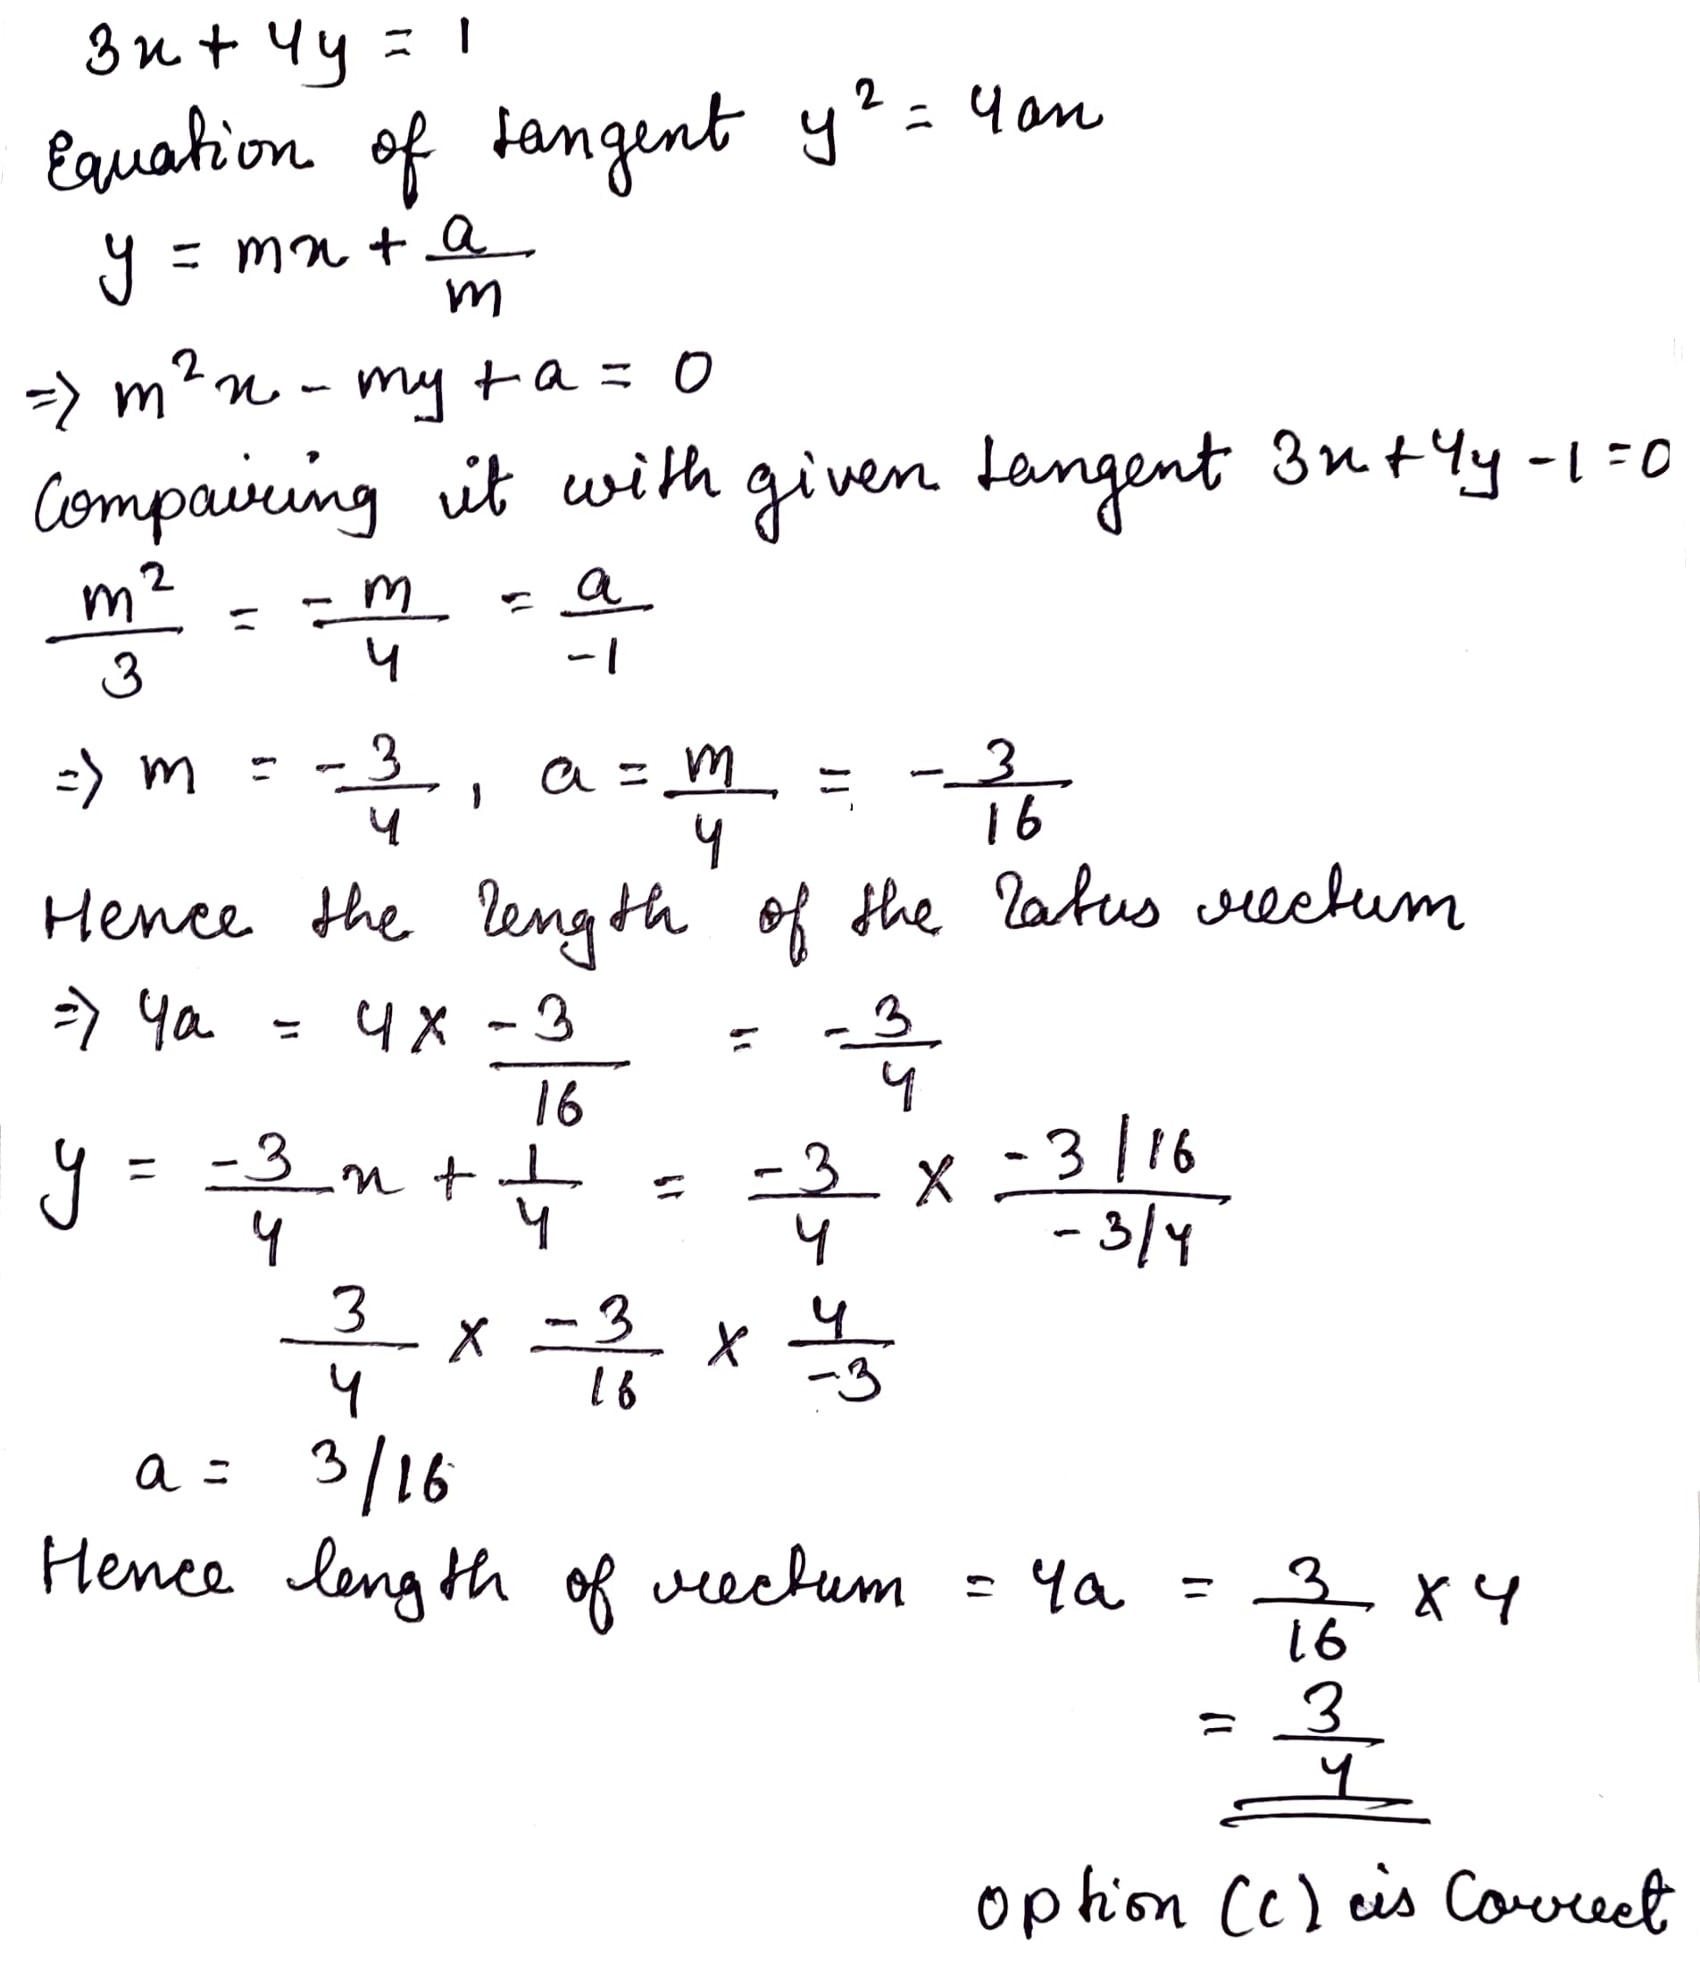 3x + 4y = 1
Equation of tangent y² = 4ax
y = mx + a/m
=> m²x - my + a = 0
Compairing it with given tangent 3x + 4y - 1 = 0
m²/3 = -m/4 = a/-1
=> m = -3/4, a = m/4 = -3/16
Hence the length of the latus rectum
=> 4a = 4 × -3/16 = -3/4
y = -3/4 x + 1/4 = -3/4 × -3/16 / -3/4
3/4 × -3/16 × 4/-3
a = 3/16
Hence length of rectum = 4a = 3/16 × 4
= 3/4
option (c) is correct